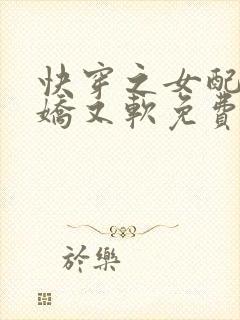 快穿之女配
嬌又軟免費
於樂